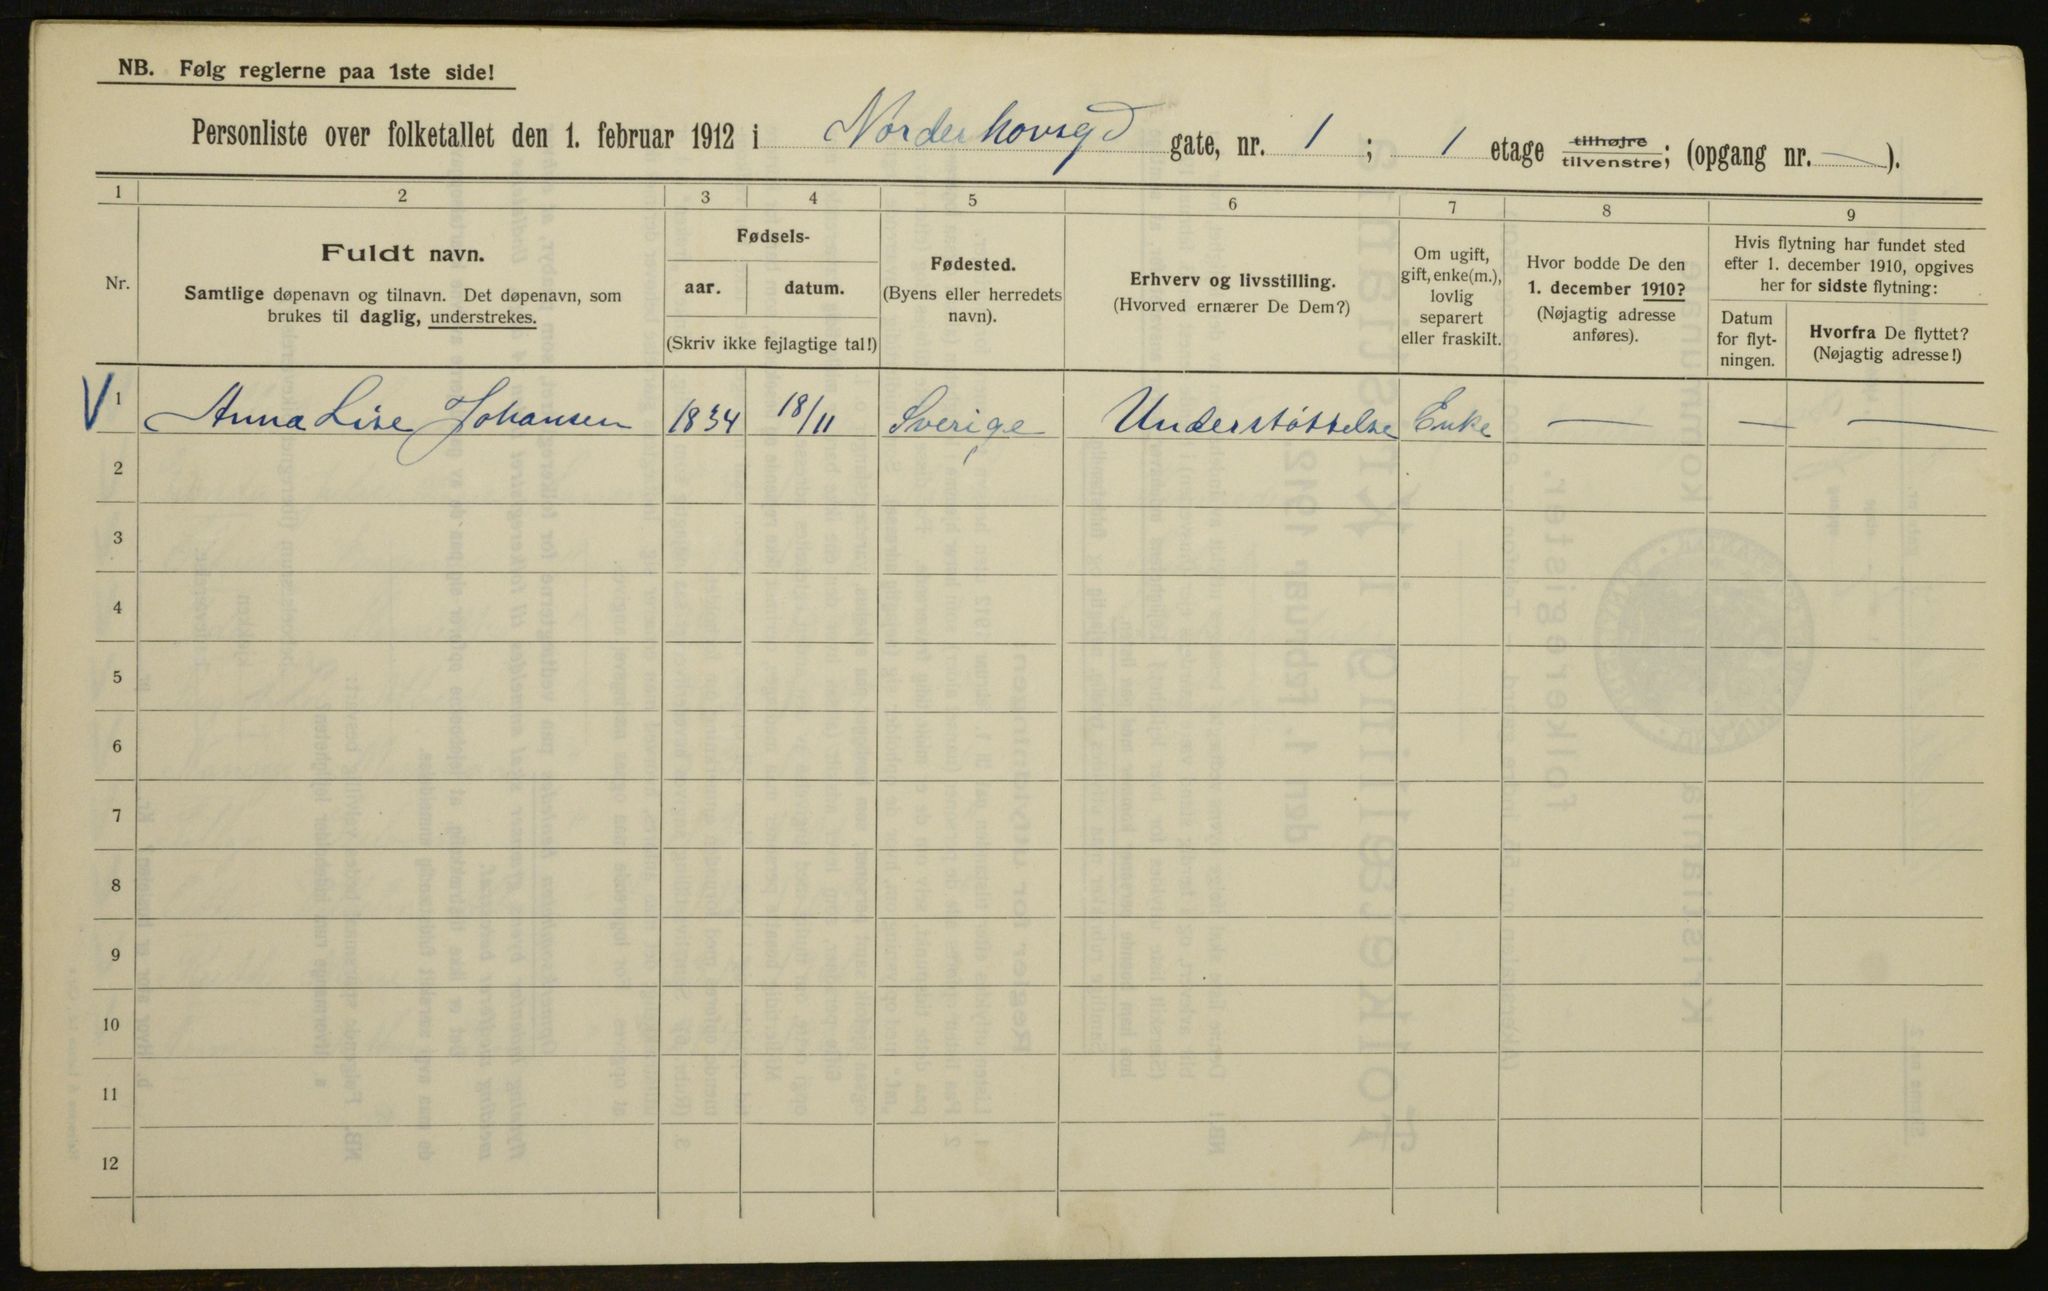 NB. Følg reglerne paa 1ste side!
Personliste over folketallet den 1. februar 1912 i Norderhovsgd gate, nr. 1 ; 1 etage tilhøjre tilvenstre; (opgang nr. — ).
1 2 3 4 5 6 7 8 9
Nr.
Fuldt navn.
Samtlige døpenavn og tilnavn. Det døpenavn, som
brukes til daglig, understrekes.
Fødsels-
aar. datum.
(Skriv ikke fejlagtige tal!)
Fødested.
(Byens eller herredets
navn).
Erhverv og livsstilling.
(Hvorved ernærer De Dem?)
Om ugift,
gift, enke(m.),
lovlig
separert
eller fraskilt.
Hvor bodde De den
1. december 1910?
(Nøjagtig adresse
anføres).
Hvis flytning har fundet sted
efter 1. december 1910, opgives
her for sidste flytning:
Datum
for flyt-
ningen.
Hvorfra De flyttet?
(Nøjagtig adresse!)
V 1 Anna Lise Johansen 1834 18/11 Sverige Understøttelse Enke — — —
2
3
4
5
6
7
8
9
10
11
12